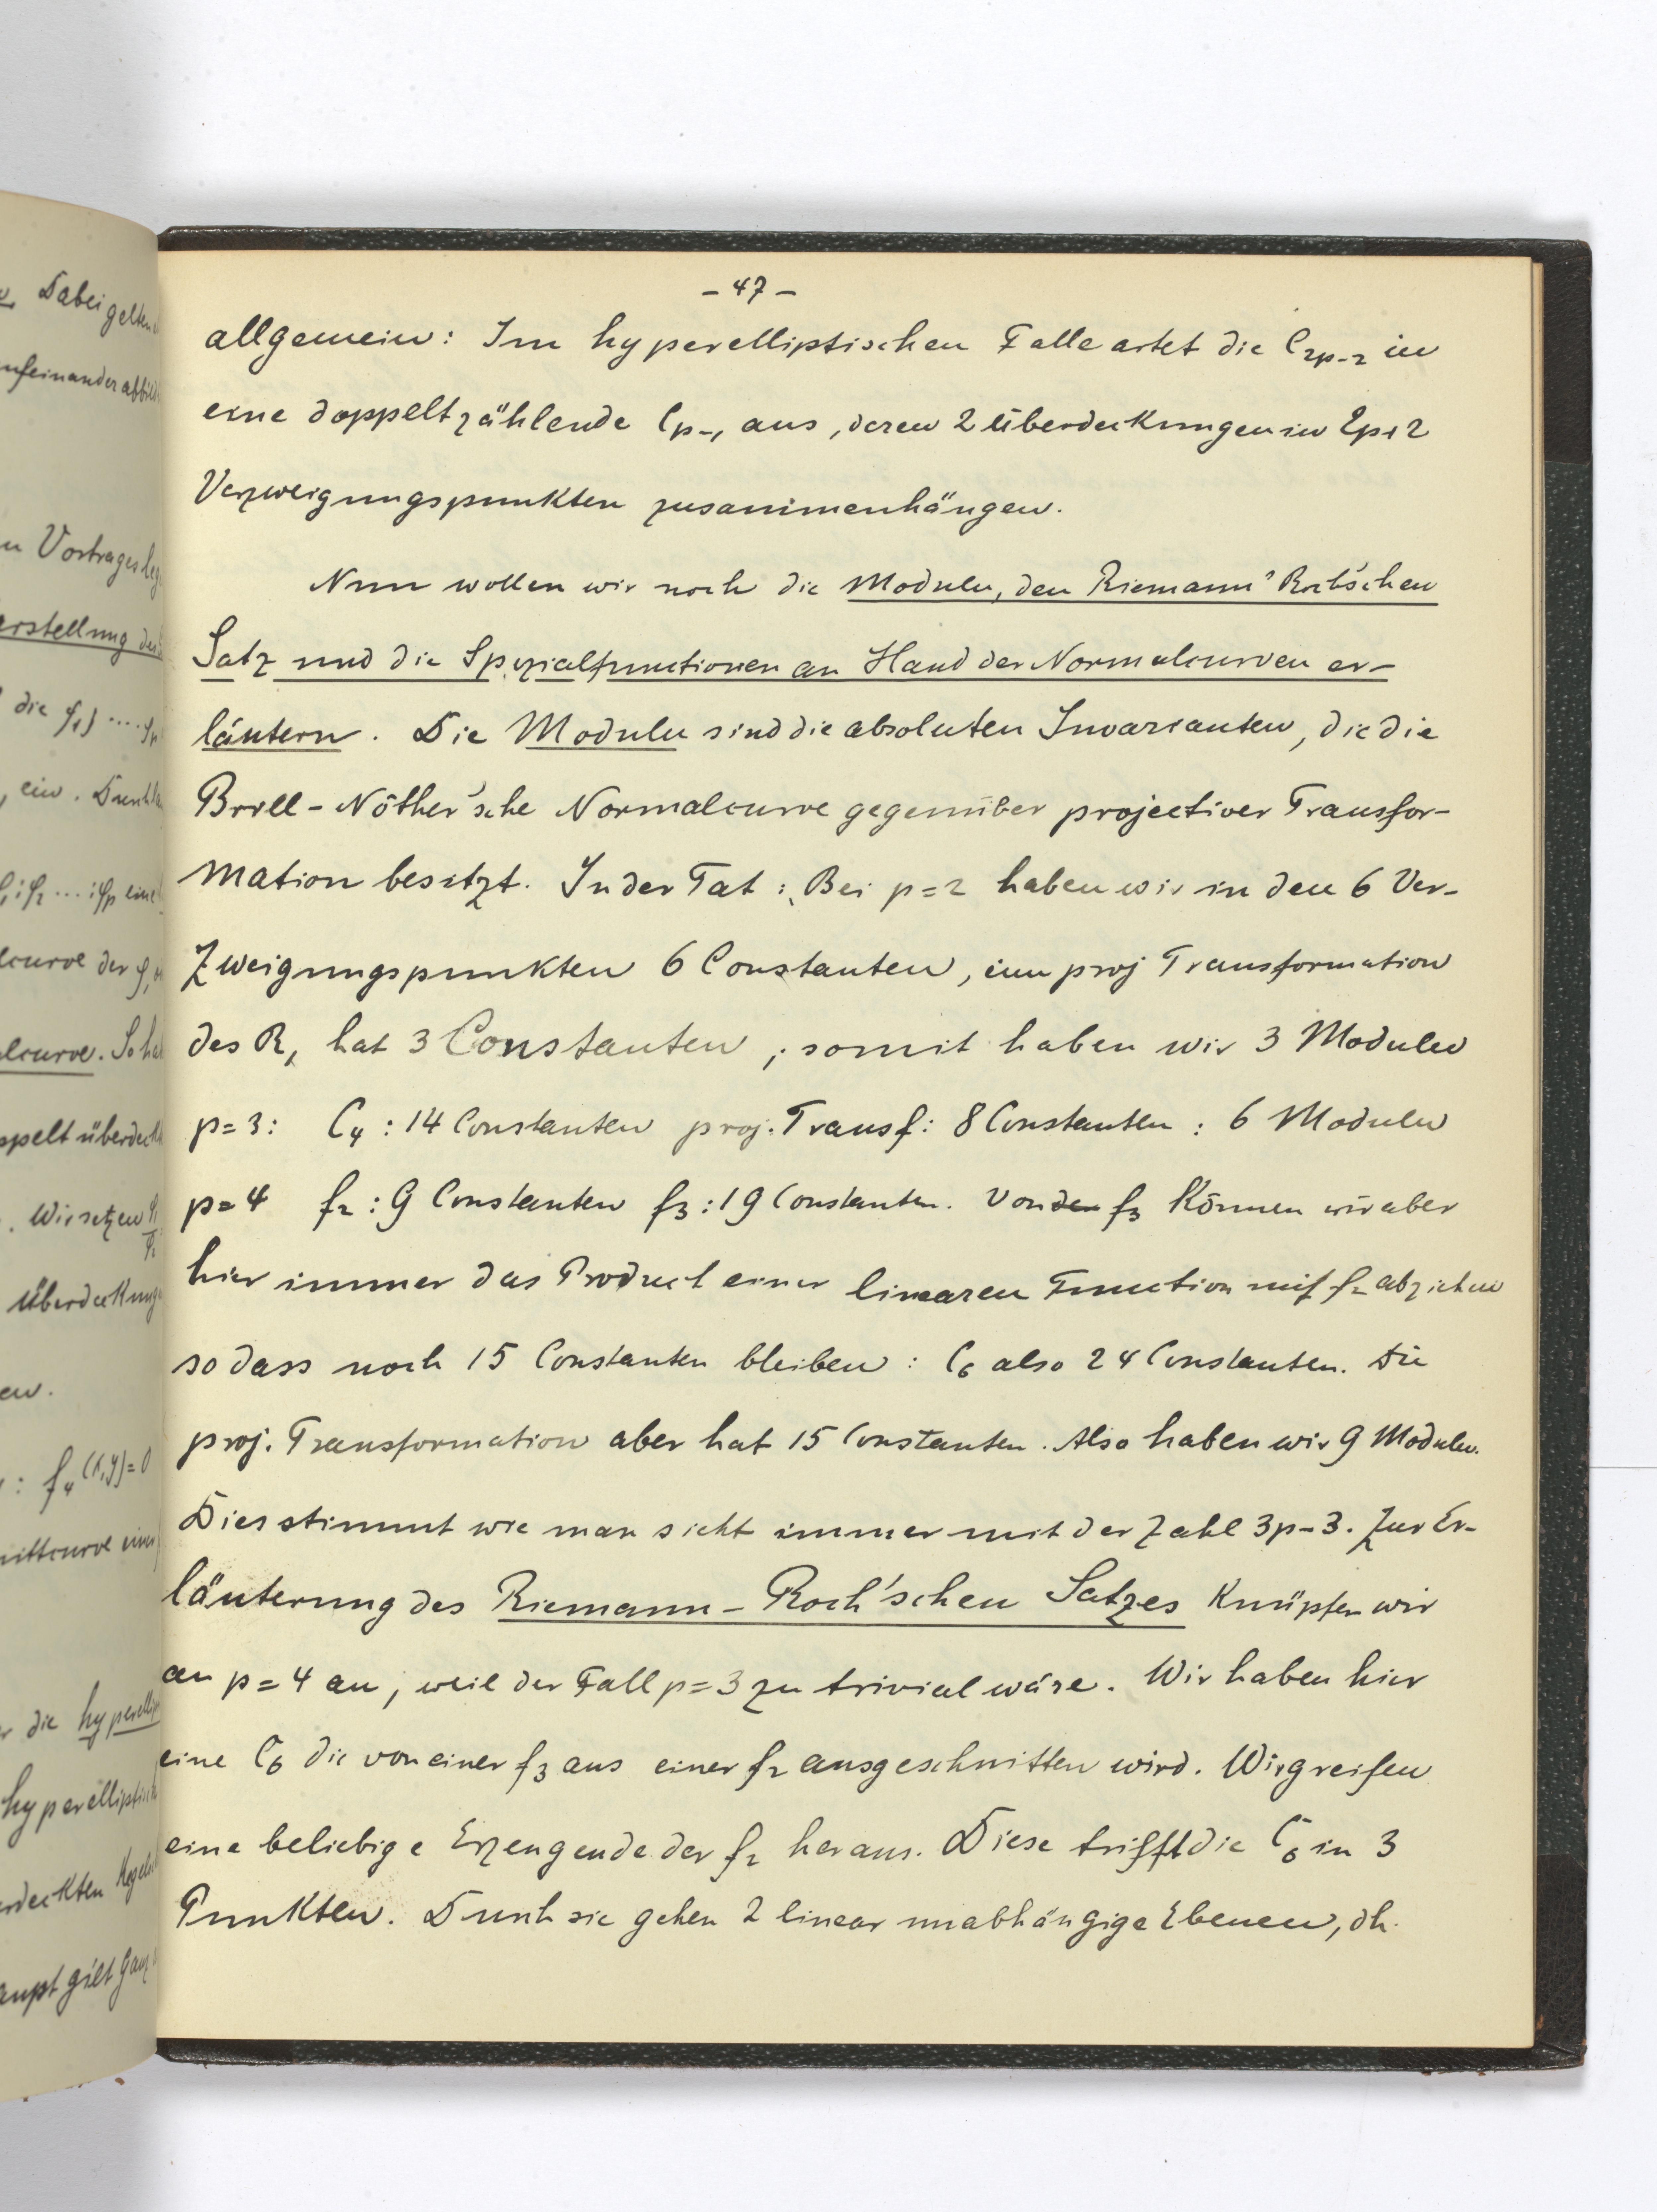 - 47 -
allgemein: Im hyperelliptischen Falle artet die C₂ₚ₋₂ in
eine doppeltzählende Cₚ₋₁ aus, deren 2 Überdeckungen in 2p+2
Verzweigungspunkten zusammenhängen.
Nun wollen wir noch die Moduln, den Riemann' Roch'schen
Satz und die Spezialfunctionen an Hand der Normalcurven er-
läutern. Die Moduln sind die absoluten Invarianten, die die
Brill-Nöther'sche Normalcurve gegenüber projectiver Transfor-
mation besitzt. In der Tat: Bei p=2 haben wir in den 6 Ver-
zweigungspunkten 6 Constanten, eine proj Transformation
des R₁ hat 3 Constanten, somit haben wir 3 Moduln
p=3: C₄: 14 Constanten proj. Transf: 8 Constanten: 6 Moduln
p=4 f₂: 9 Constanten f₃: 19 Constanten. Von der f₃ können wir aber
hier immer das Product einer linearen Function mit f₂ abziehen
so dass noch 15 Constanten bleiben: C₆ also 24 Constanten. Die
proj. Transformation aber hat 15 Constanten. Also haben wir 9 Moduln.
Dies stimmt wie man sieht immer mit der Zahl 3p-3. Zur Er-
läuterung des Riemann-Roch'schen Satzes knüpfen wir
an p=4 an, weil der Fall p=3 zu trivial wäre. Wir haben hier
eine C₆ die von einer f₃ aus einer f₂ ausgeschnitten wird. Wir greifen
eine beliebige Erzeugende der f₂ heraus. Diese trifft die C₆ in 3
Punkten. Durch sie gehen 2 linear unabhängige Ebenen, dh.